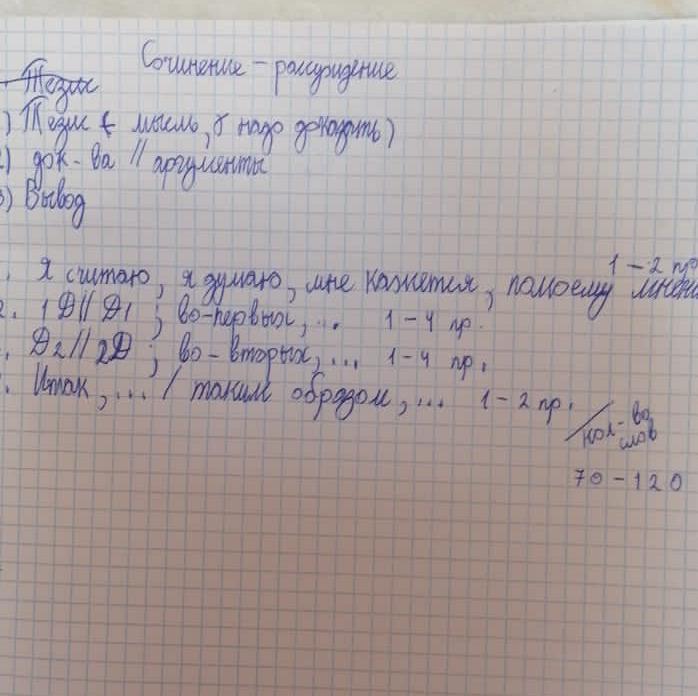 Сочинение - рассуждение
Тезис
1) Тезис ( мысль, γ надо доказать)
2) док-ва // аргументы
3) Вывод
1 - 2 пр
. Я считаю, я думаю, мне кажется, помоему мнени
2. 1Д // Д1 ; во-первых, ... 1 - 4 пр.
. Д2 // 2Д ; во - вторых, ... 1 - 4 пр.
. Итак, ... / таким образом, ... 1 - 2 пр.
/ кол-во
слов
70 - 120